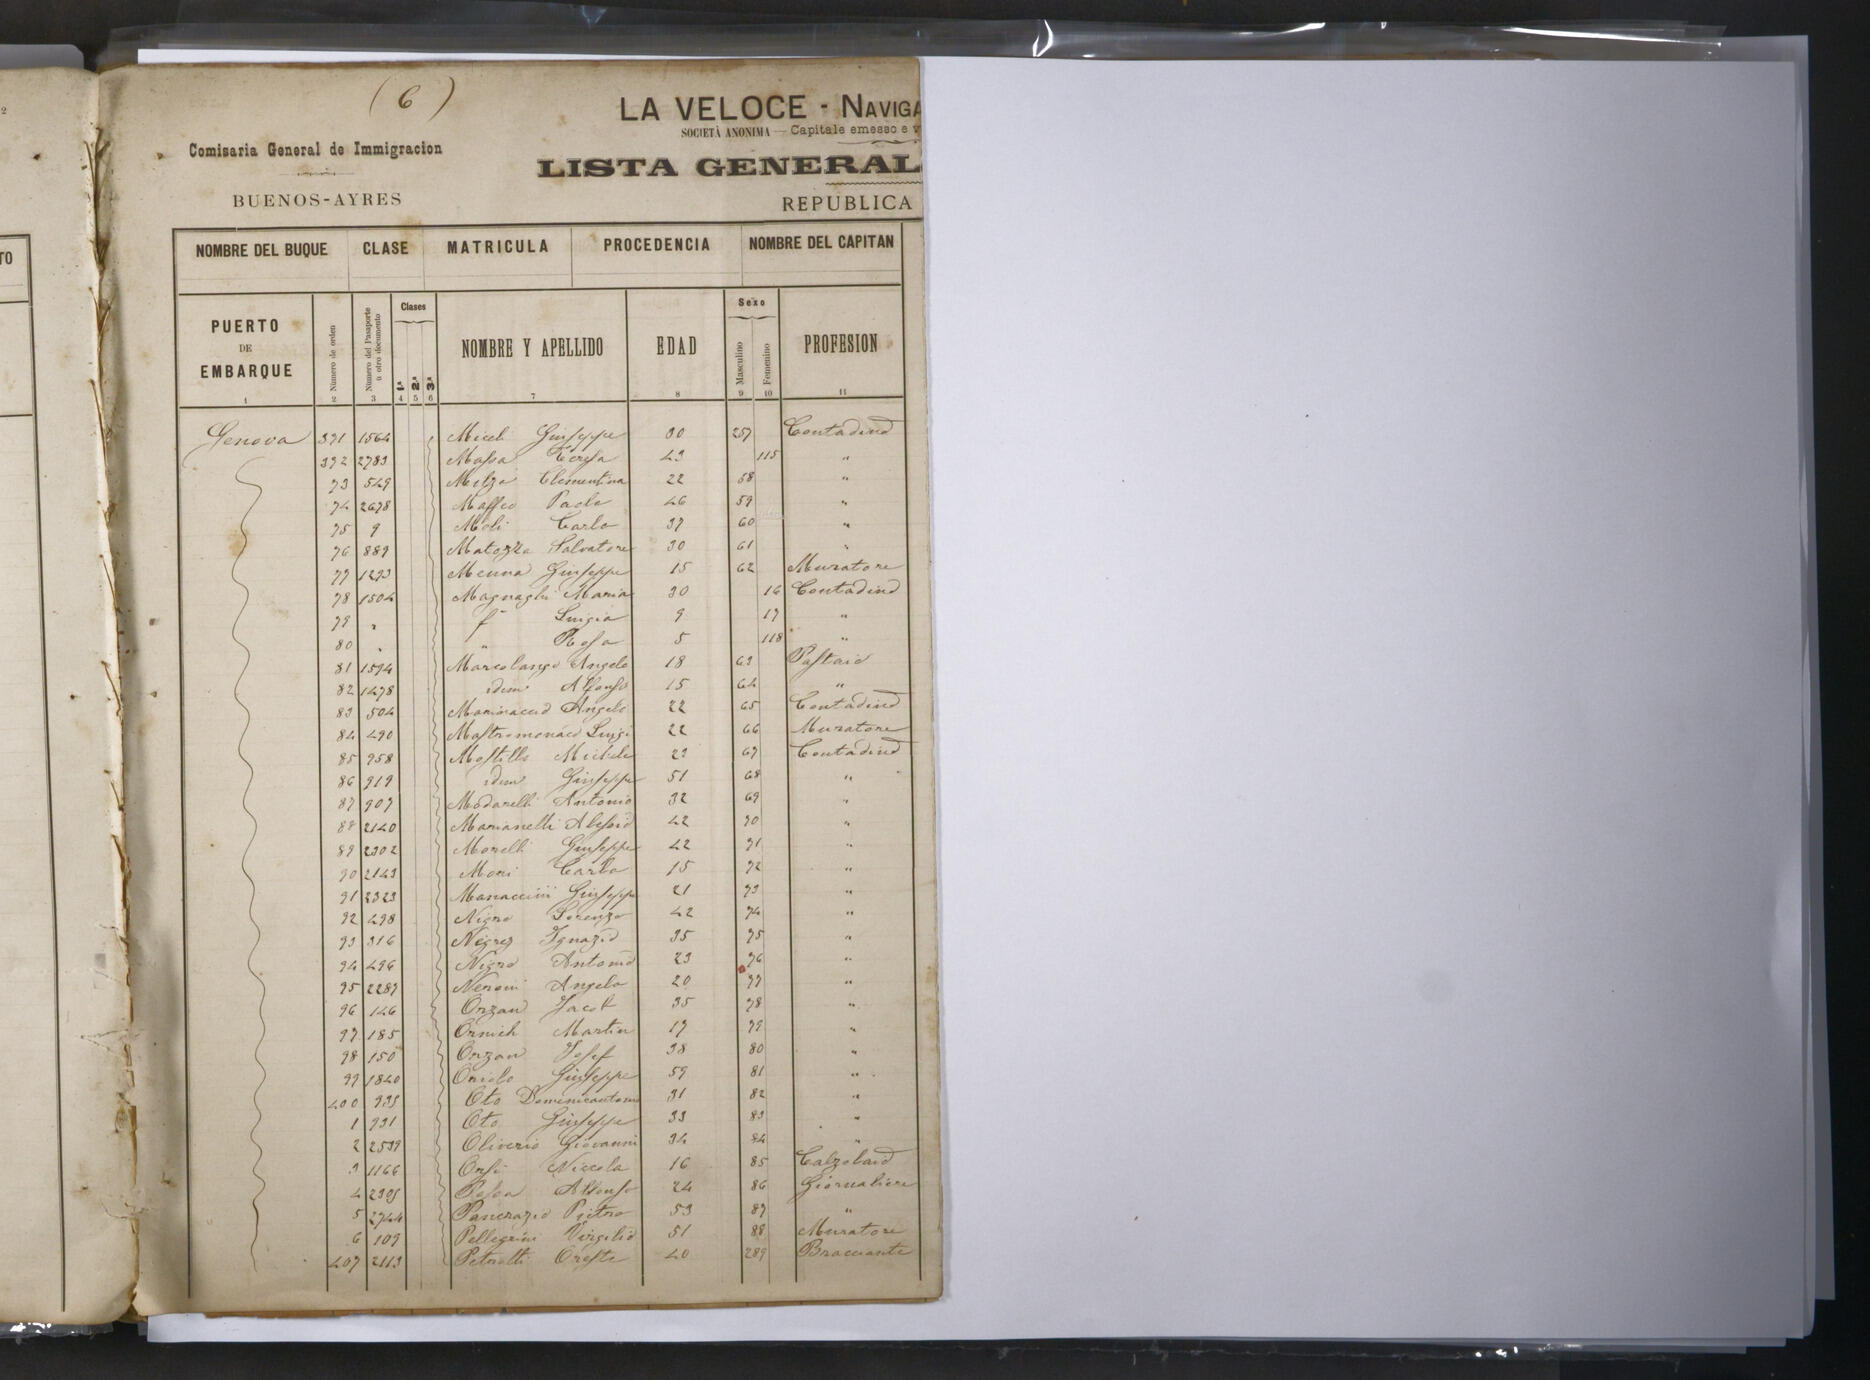 2
( 6 )
LA VELOCE - NAVIGA
SOCIETÀ ANONIMA — Capitale emesso e v
Comisaria General de Immigracion
LISTA GENERAL
BUENOS-AYRES
REPUBLICA
TO
NOMBRE DEL BUQUE CLASE MATRICULA PROCEDENCIA NOMBRE DEL CAPITAN
PUERTO DE EMBARQUE Número de orden Número del Pasaporte u otro documento Clases 1.ª 2.ª 3.ª NOMBRE Y APELLIDO EDAD Sexo Masculino Femenino PROFESION
1 2 3 4 5 6 7 8 9 10 11
Genova 371 1564 Miceli Giuseppe 30 257 Contadino
372 2783 Massa Teresa 43 115 "
73 549 Melza Clementina 22 58 "
74 2678 Maffeo Paolo 46 59 "
75 9 Moli Carlo 37 60 "
76 889 Matozza Salvatore 30 61 "
77 1293 Menna Giuseppe 15 62 Muratore
78 1504 Magnaghi Maria 30 16 Contadino
79 " f Luigia 9 17 "
80 " " Rosa 5 118 "
81 1594 Marcolongo Angelo 18 63 Pastaio
82 1478 idem Alfonso 15 64 "
83 504 Angelo 22 65 Contadino
84 490 Mastromonaco Luigi 22 66 Muratore
85 958 Mostillo Michele 23 67 Contadino
86 919 idem Giuseppe 51 68 "
87 907 Modarelli Antonio 32 69 "
88 2140 Marianelli 42 70 "
89 2302 Morelli Giuseppe 42 71 "
90 2143 Mori Carlo 15 72 "
91 2323 Manaccini Giuseppe 21 73 "
92 498 Nigro Lorenzo 42 74 "
93 316 Ignazio 35 75 "
94 496 Nigro Antonio 23 76 "
95 2289 Neroni Angelo 20 77 "
96 146 Orzan Jacob 35 78 "
97 185 Martin 17 79 "
98 150 Orzan Josef 38 80 "
99 1840 Oriolo Giuseppe 59 81 "
400 935 Oto Domenicantonio 31 82 "
1 931 Oto Giuseppe 33 83 "
2 2539 Oliverio Giovanni 34 84 "
3 1166 Orsi Niccola 16 85 Calzolaio
4 2395 Alfonso 24 86 Giornaliere
5 2744 Pancrazio Pietro 53 87 "
6 109 Pellegrini Virgilio 51 88 Muratore
407 2113 Petrelli Oreste 40 289 Bracciante